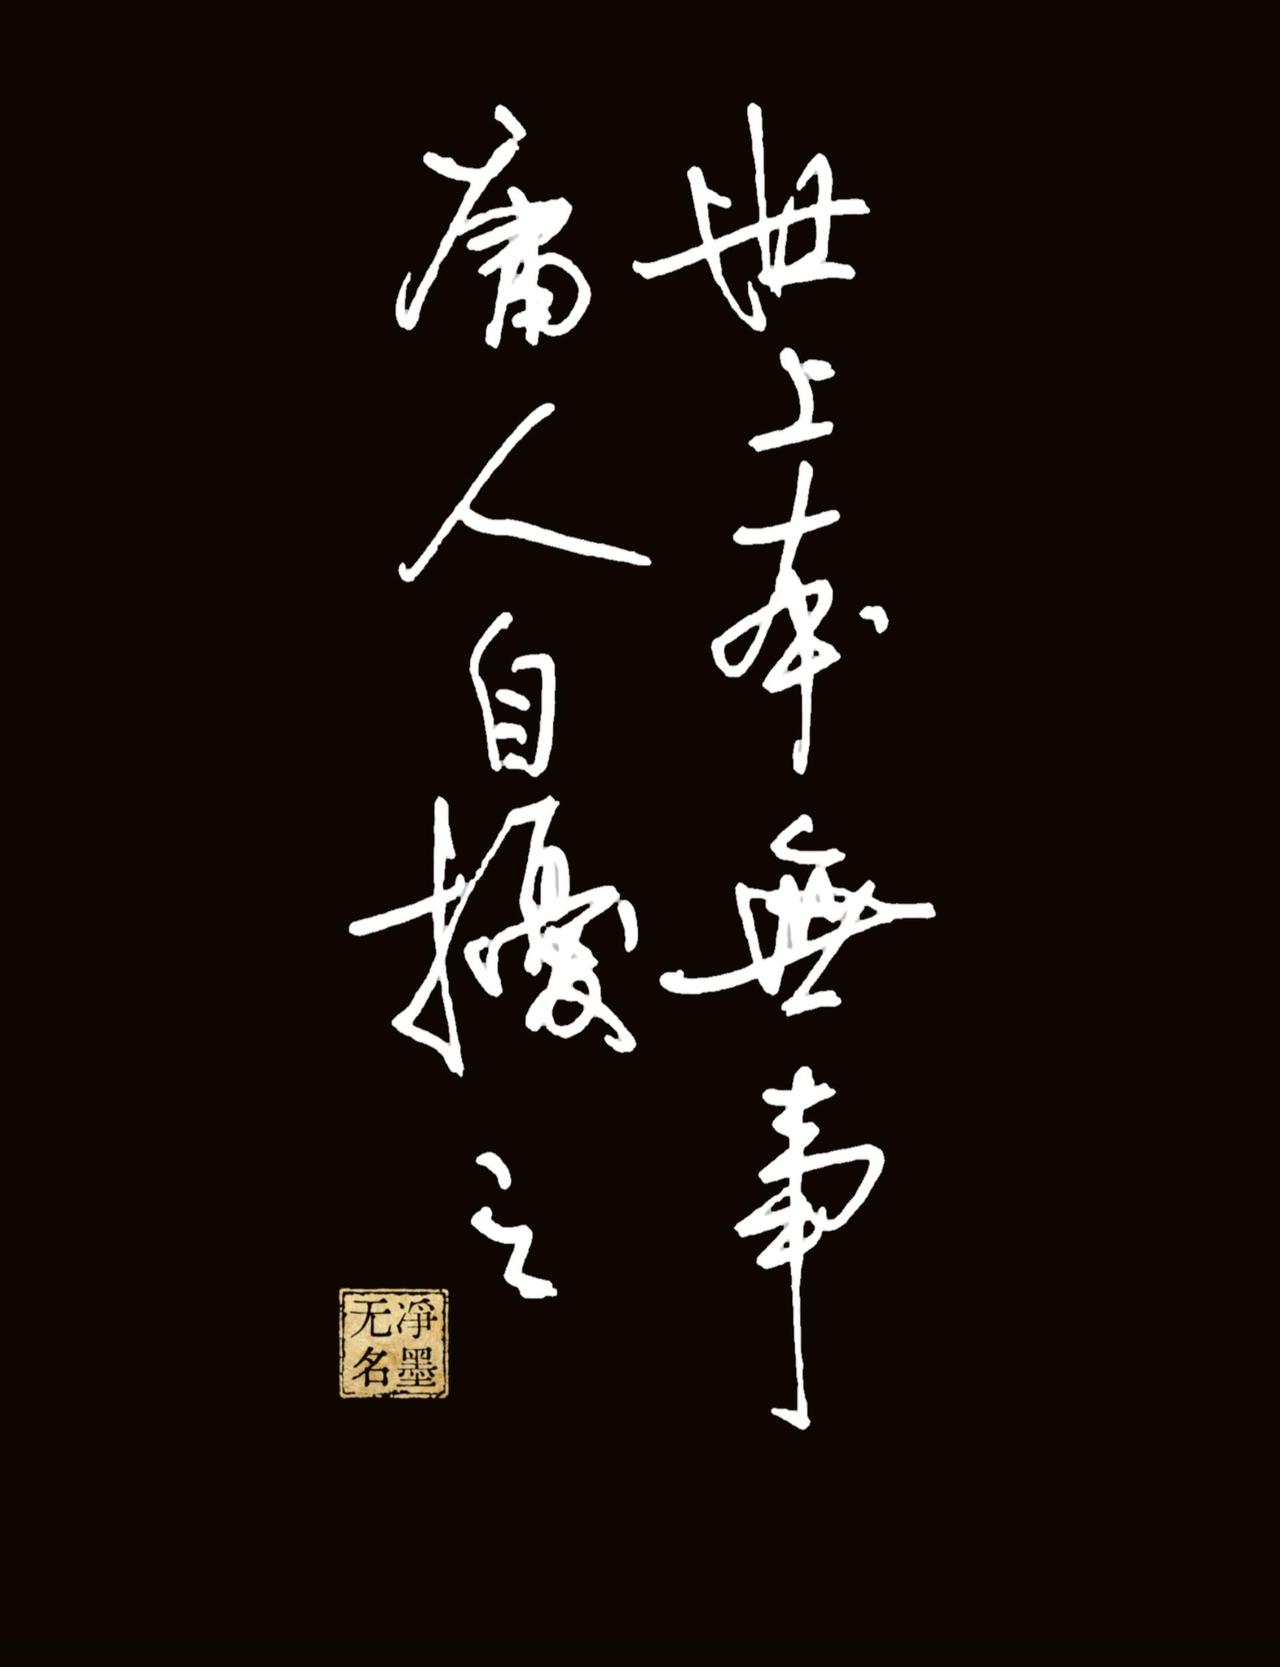 世上本無事
庸人自擾之
凈墨
无名